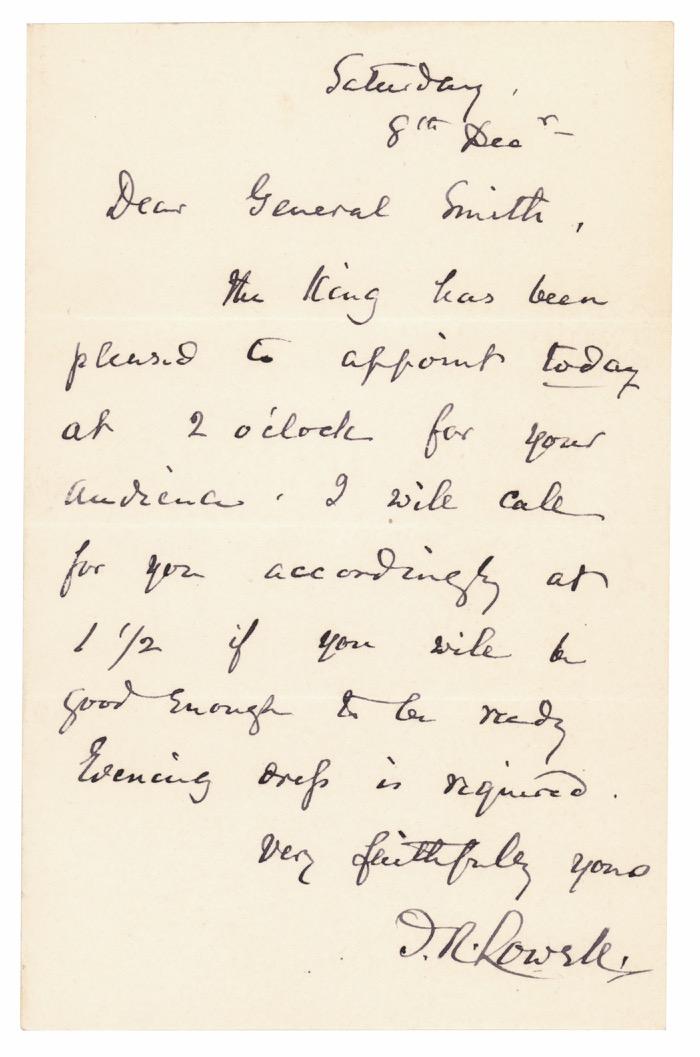 Saturday,
8th Decr
Dear General Smith,
The King has been
pleased to appoint today
at 2 o'clock for your
audience. I will call
for you accordingly at
1 1/2 if you will be
good enough to be ready
Evening dress is required.
Very faithfully yours
J.R. Lowell.